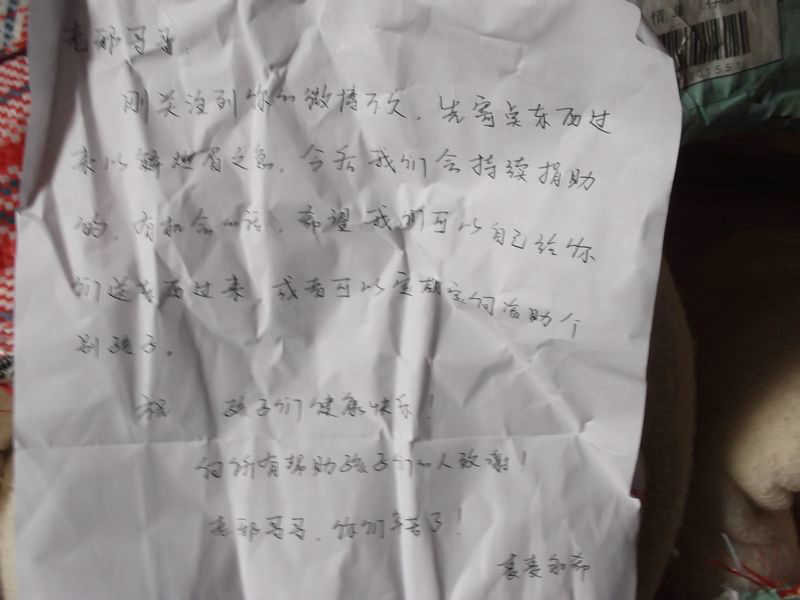 老邢哥哥,
刚关注到你的微博不久,先寄点东西过
来以解燃眉之急,今后我们会持续捐助
的,有机会的话,希望我们可以自己给你
们送东西过来,或者可以定期定向资助个
别孩子。
祝 孩子们健康快乐!
向所有帮助孩子们的人致谢!
老邢哥哥,你们辛苦了!